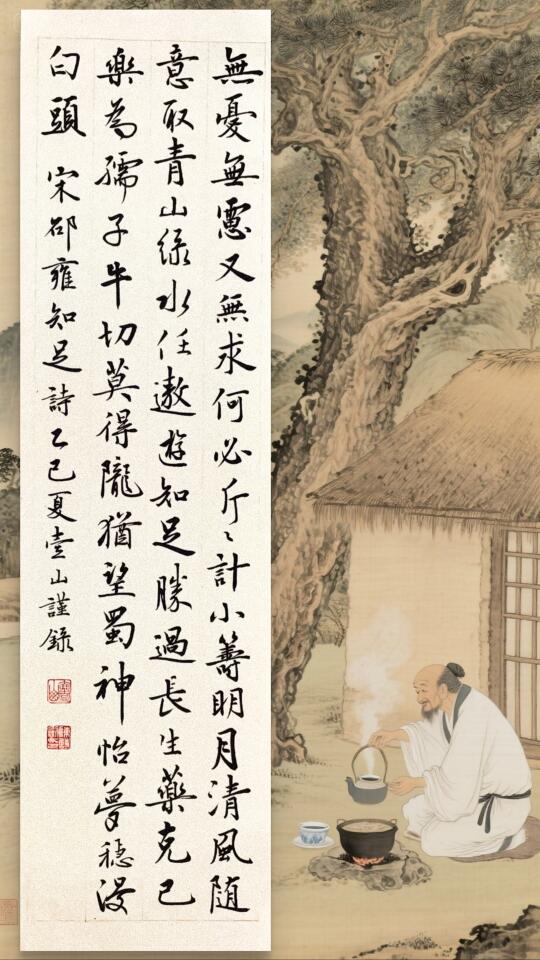 無憂無慮又無求何必斤〻計小籌明月清風隨
意取青山綠水任遨遊知足勝過長生藥克己
樂為孺子牛切莫得隴猶望蜀神怡夢穩漫
白頭 宋邵雍知足詩乙巳夏壹山謹錄